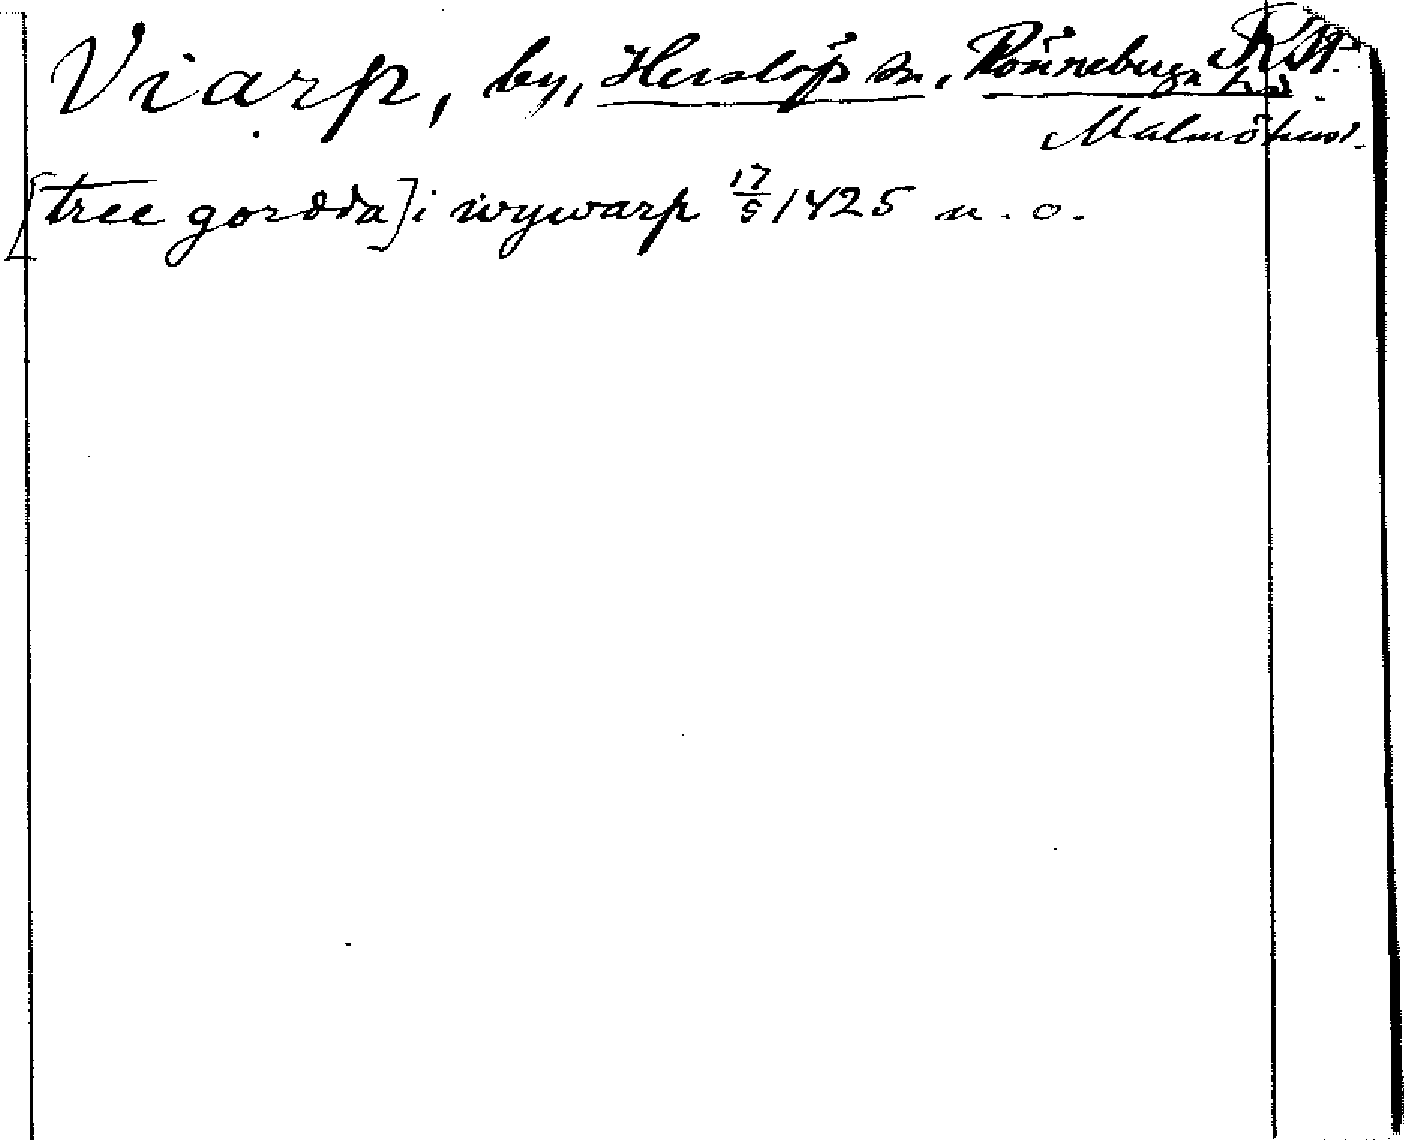 Viarp, by, Herslöfs sn, Rönnebergs hd.
Malmöhus l.
[tree gordda] i wywarp 17/5 1425 n. o.